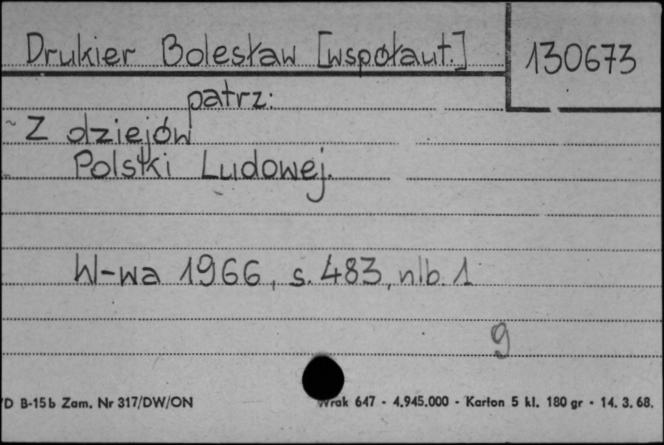 Drukier Bolesław [współaut.] 130673
patrz:
Z dziejów
Polski Ludowej.
W-wa 1966, s. 483, nlb. 1
9
D B-15b Zam. Nr 317/DW/ON Wrak 647 - 4.945.000 - Karton 5 kl. 180 gr - 14. 3. 68.